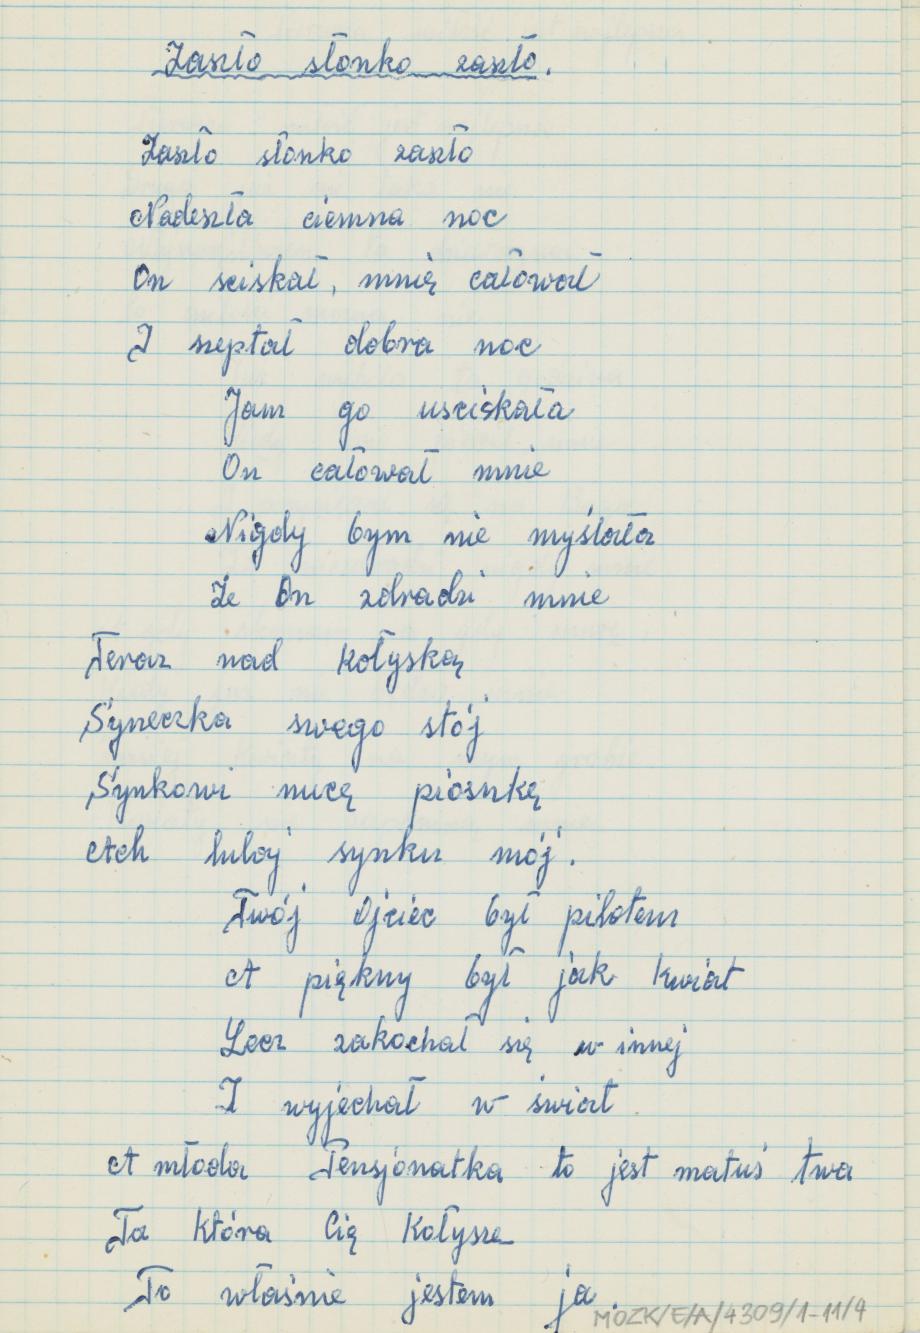 Zaszło słonko zaszło.
Zaszło słonko zaszło
Nadeszła ciemna noc
On sciskał, mnię całował
I szeptał dobra noc
Jam go usciskała
On całował mnie
Nigdy bym nie myślała
Że On zdradzi mnie
Teraz nad Kołyską
Syneczka swego stój
Synkowi nucę piosnkę
Ach lulaj synku mój.
Twój Ojciec był pilotem
A piękny był jak kwiat
Lecz zakochał się w innej
I wyjechał w świat
A młoda Pensjonatka to jest matuś twa
Ta która Cię Kołysze
To właśnie jestem ja.
MOZK/E/A/4309/1-11/4